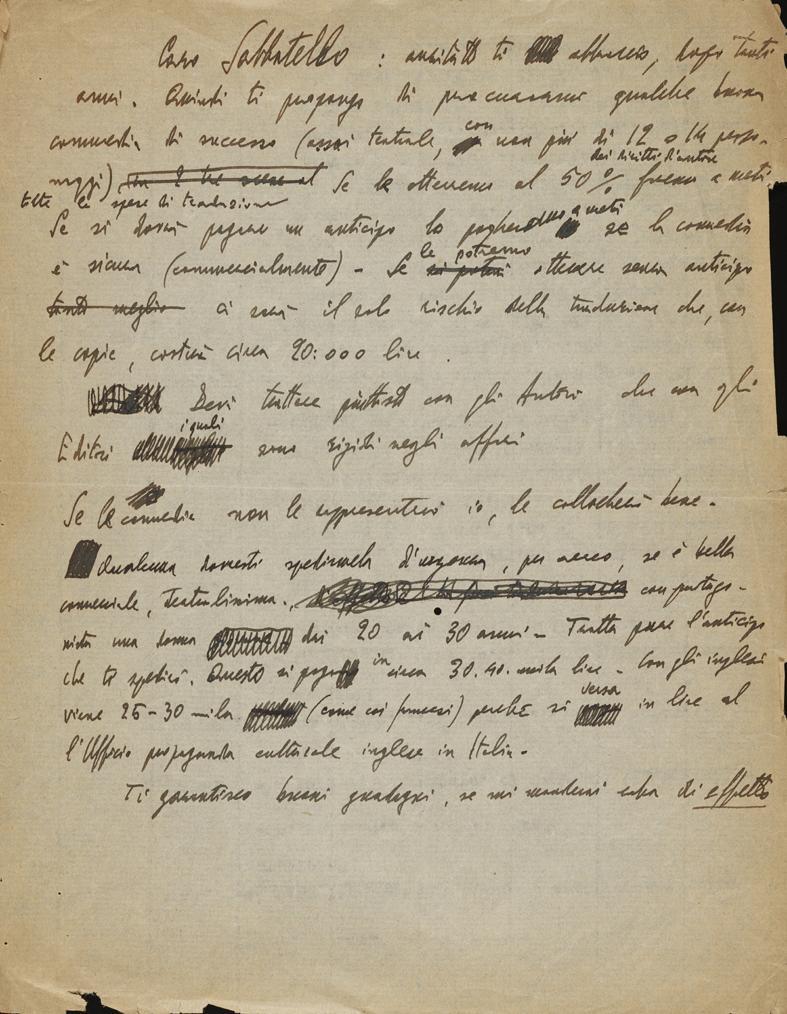 Caro Sabbatello : anzitutto ti abbraccio, dopo tanti
anni. Quindi ti propongo di procurarmi qualche buona
commedia di successo (assai teatrale, con non più di 12 o 14 perso-
naggi) Se la otteremo al 50% dei diritti d'autore faremo a metà
tutte le spese di traduzione
Se si dovrà pagare un anticipo lo pagheremo a metà se la commedia
è sicura (commercialmente) - Se la potremo ottenere senza anticipo
tanto meglio ci sarà il solo rischio della traduzione che, con
le copie, costerà circa 20:000 lire .
Devi trattare piuttosto con gli Autori che con gli
Editori i quali sono rigidi negli affari
Se la commedia non la rappresenterei io, la collocherei bene -
Qualcuna dovresti spedirmela d'urgenza, per aereo, se è bella
commerciale, Teatralissima. con protago-
nista una donna dai 20 ai 30 anni - Tratta pure l'anticipo
che ti spedirò. Questo si paga in circa 30.40. mila lire - Con gli inglesi
viene 25-30 mila (come coi francesi) perché si versa in lire al
l'Ufficio propaganda culturale inglese in Italia -
Ti garantisco buoni guadagni, se mi manderai roba di effetto